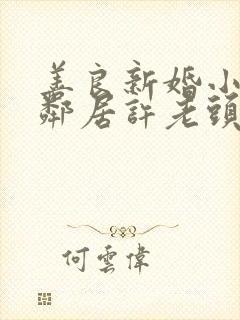 善良新婚小
鄰居許老頭
何雲偉